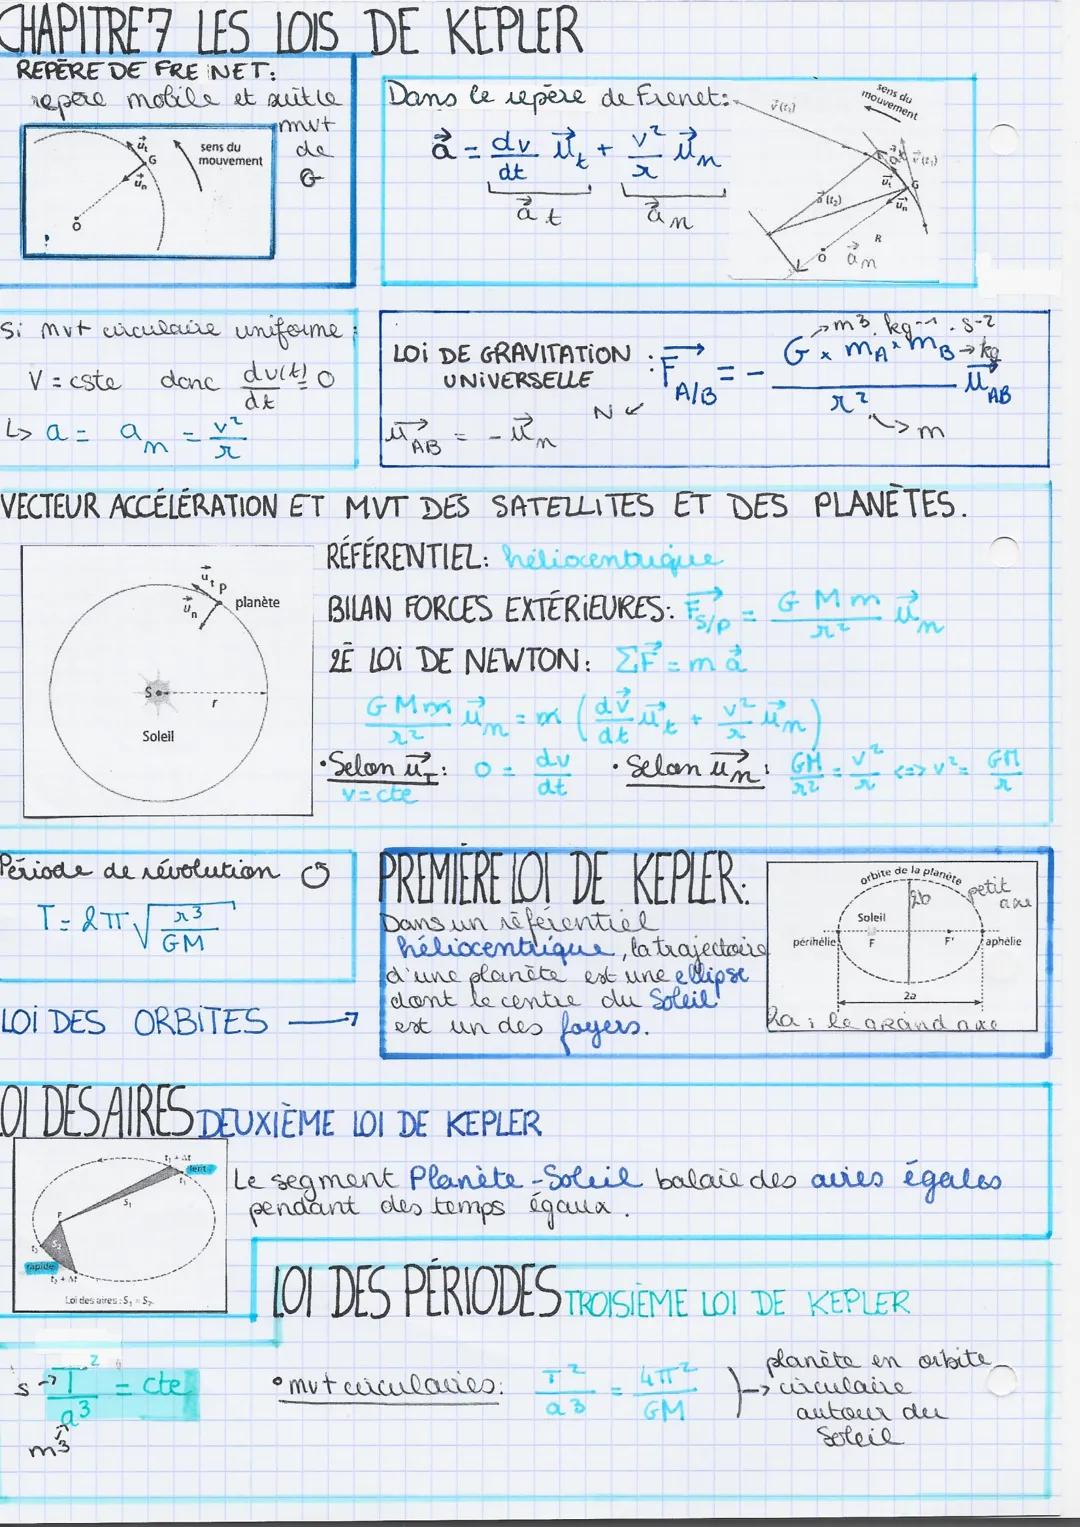 CHAPITRE 7 LES LOIS DE KEPLER
REPÈRE DE FREINET:
repère mobile et suit le
mvt
de
G
sens du
mouvement
u_t
G
u_n
O
Dans le repère de Frenet:
a⃗ = dv/dt u⃗_t + v²/r u⃗_n
a⃗_t
a⃗_n
sens du
mouvement
v⃗(t₂)
v⃗(t₁)
a⃗(t₂)
a⃗_t
u⃗_t
G
u⃗_n
R
O
a⃗_n
Si mvt circulaire uniforme :
V = cste donc dv(t)/dt = 0
↳ a = a_n = v²/r
LOI DE GRAVITATION
UNIVERSELLE
: F⃗_A/B = - G × m_A × m_B / r² u⃗_AB
→ m³.kg⁻¹.s⁻²
→ kg
N
→ m
u⃗_AB = - u⃗_n
VECTEUR ACCÉLÉRATION ET MVT DES SATELLITES ET DES PLANÈTES.
u⃗_t
P
u⃗_n
planète
S
r
Soleil
RÉFÉRENTIEL: héliocentrique
BILAN FORCES EXTÉRIEURES: F⃗_S/P = G M m / r² u⃗_n
2E LOI DE NEWTON: ΣF⃗ = m a⃗
G M m / r² u⃗_n = m ( dv⃗/dt u⃗_t + v²/r u⃗_n )
• Selon u⃗_T : 0 = dv/dt
v = cte
• Selon u⃗_n : GM/r² = v²/r <=> v² = GM/r
Période de révolution
T = 2π √(r³/GM)
LOI DES ORBITES →
PREMIÈRE LOI DE KEPLER:
Dans un référentiel
héliocentrique, la trajectoire
d'une planète est une ellipse
dont le centre du Soleil
est un des foyers.
orbite de la planète
2b
petit
axe
Soleil
périhélie
F
F'
aphélie
2a
2a : le grand axe
LOI DES AIRES DEUXIÈME LOI DE KEPLER
t₁ + Δt
lent
t₁
S₁
F
S₂
t₂
rapide
t₂ + Δt
Loi des aires : S₁ = S₂.
Le segment Planète-Soleil balaie des aires égales
pendant des temps égaux.
LOI DES PÉRIODES TROISIÈME LOI DE KEPLER
s → T²/a³ = cte
m³
• mvt circulaires: T²/a³ = 4π²/GM
planète en orbite
→ circulaire
autour du
Soleil